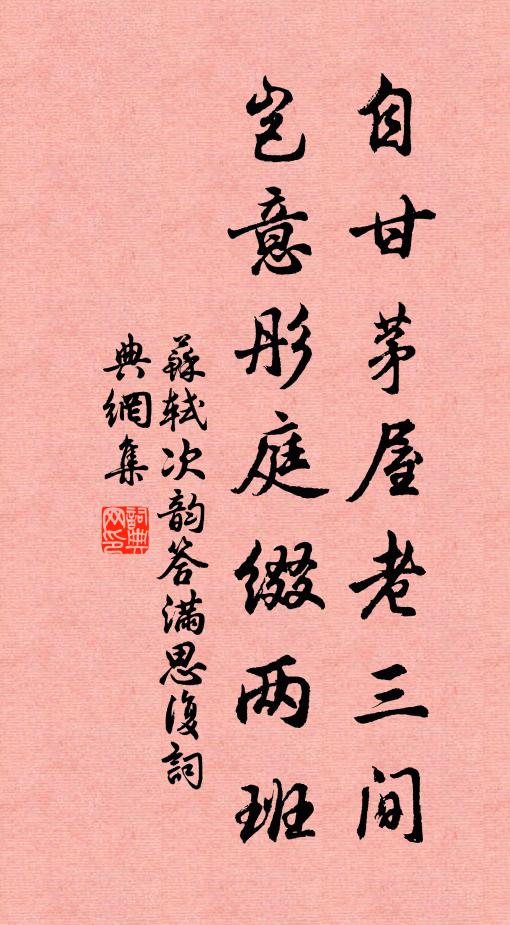 自甘茅屋老三间
岂意彤庭缀两班
蘇軾次韵答满思复詞
典網集
詞典
网印